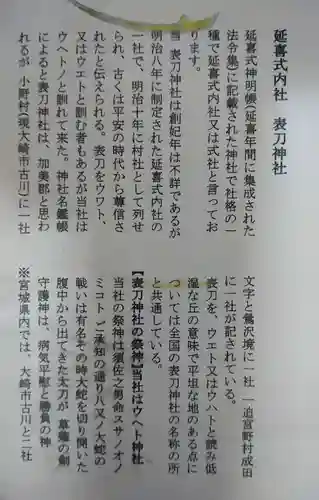 延喜式内社　表刀神社
延喜式神明帳(延喜年間に集成された
法令集)に記載された神社で社格の一
種で延喜式内社又は式社と言ってお
ります。
当　表刀神社は創妃年は不詳であるが
明治八年に制定された延喜式内社の
一社で、明治十年に村社として列せ
られ、古くは平安の時代から尊信さ
れたと伝えられる。表刀をウワト、
又はウエトと訓む者もあるが当社は
ウヘトノと訓れて来た。神社名鑑帳
によると表刀神社は、加美郡と思わ
れるが　小野村(現大崎市古川)に一社
文字と鶯沢境に一社　一迫宮野村成田
に一社が記されている。
表刀を、ウエト又はウハトと読み低
湿な丘の意味で平坦な地のある点に
ついては全国の表刀神社の名称の所
と共通している。
【表刀神社の祭神】当社はウヘト神社
当社の祭神は須佐之男命スサノオノ
ミコト　ご承知の通り八又ノ大蛇の
戦いは有名その時大蛇を切り開いた
腹中から出てきた太刀が　草薙の剣
守護神は、病気平癒と勝負の神
※宮城県内では、大崎市古川と二社